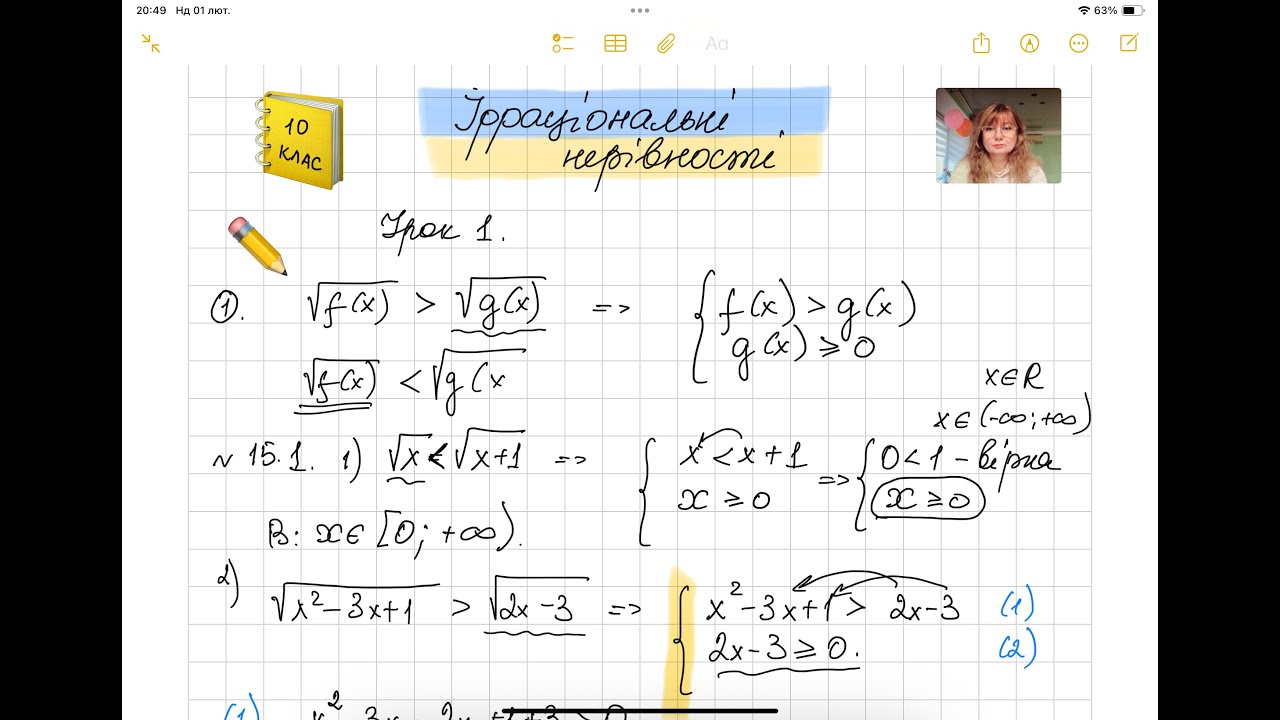 20:49 Нд 01 лют.
63%
Aa
10
КЛАС
Ірраціональні
нерівності
Урок 1.
1. √f(x) > √g(x) => { f(x) > g(x)
g(x) ≥ 0
√f(x) < √g(x
x ∈ R
x ∈ (-∞; +∞)
№ 15.1. 1) √x < √x+1 => { x < x + 1 => { 0 < 1 - вірна
x ≥ 0 x ≥ 0
В: x ∈ [0; +∞).
2) √x²-3x+1 > √2x-3 => { x²-3x+1 > 2x-3 (1)
2x-3 ≥ 0. (2)